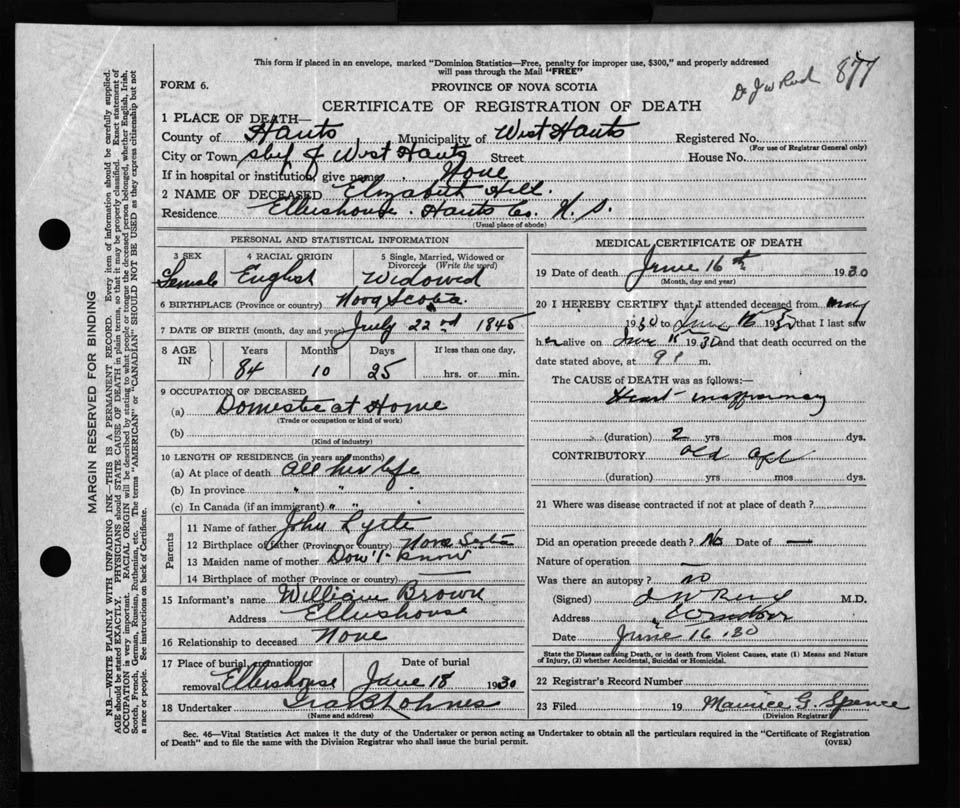 This form if placed in an envelope, marked "Dominion Statistics—Free, penalty for improper use, $300," and properly addressed
will pass through the Mail "FREE"
FORM 6.
PROVINCE OF NOVA SCOTIA
Dr J W Reid 877
CERTIFICATE OF REGISTRATION OF DEATH
1 PLACE OF DEATH—
County of Hants Municipality of West Hants Registered No.
(For use of Registrar General only)
City or Town West Hants Street House No.
If in hospital or institution, give name None
2 NAME OF DECEASED Elizabeth Hill.
Residence Ellershouse. Hants Co. N. S.
(Usual place of abode)
PERSONAL AND STATISTICAL INFORMATION
3 SEX Female
4 RACIAL ORIGIN English
5 Single, Married, Widowed or Divorced (Write the word) Widowed
6 BIRTHPLACE (Province or country) Nova Scotia
7 DATE OF BIRTH (month, day and year) July 22nd 1845
8 AGE IN Years 84 Months 10 Days 25 If less than one day, hrs. or min.
9 OCCUPATION OF DECEASED
(a) Domestic at Home
(Trade or occupation or kind of work)
(b)
(Kind of industry)
10 LENGTH OF RESIDENCE (in years and months)
(a) At place of death all her life
(b) In province " " "
(c) In Canada (if an immigrant) " " "
Parents
11 Name of father John
12 Birthplace of father (Province or country) Nova Scotia
13 Maiden name of mother Don't know
14 Birthplace of mother (Province or country) —
15 Informant's name William Brown
Address Ellershouse
16 Relationship to deceased None
17 Place of burial, cremation or removal Ellershouse Date of burial June 18 1930
18 Undertaker Ira B Lohnes
(Name and address)
MEDICAL CERTIFICATE OF DEATH
19 Date of death June 16th 1930
(Month, day and year)
20 I HEREBY CERTIFY that I attended deceased from may
1930 to June 16 1930 that I last saw
her alive on June 15 1930 and that death occurred on the
date stated above, at 9 m.
The CAUSE OF DEATH was as follows:—
Heart
(duration) 2 yrs mos dys.
CONTRIBUTORY old age
(duration) yrs. mos. dys.
21 Where was disease contracted if not at place of death?
Did an operation precede death? No Date of —
Nature of operation —
Was there an autopsy? no
(Signed) J W Reid M.D.
Address Windsor
Date June 16 30
State the Disease causing Death, or in death from Violent Causes, state (1) Means and Nature
of Injury, (2) whether Accidental, Suicidal or Homicidal.
22 Registrar's Record Number
23 Filed 19 Maurice G. Spence
(Division Registrar)
Sec. 46—Vital Statistics Act makes it the duty of the Undertaker or person acting as Undertaker to obtain all the particulars required in the "Certificate of Registration
of Death" and to file the same with the Division Registrar who shall issue the burial permit. (OVER)
MARGIN RESERVED FOR BINDING
N.B.—WRITE PLAINLY WITH UNFADING INK—THIS IS A PERMANENT RECORD. Every item of information should be carefully supplied.
AGE should be stated EXACTLY. PHYSICIANS should STATE CAUSE OF DEATH in plain terms, so that it may be properly classified. Exact statement of
OCCUPATION is very important. RACIAL ORIGIN will be described by stating to what people or tongue the deceased person belonged, whether English, Irish,
Scotch, French, German, Russian, Ruthenian, etc. The terms "AMERICAN" or "CANADIAN" SHOULD NOT BE USED as they express citizenship but not
a race or people. See instructions on back of Certificate.